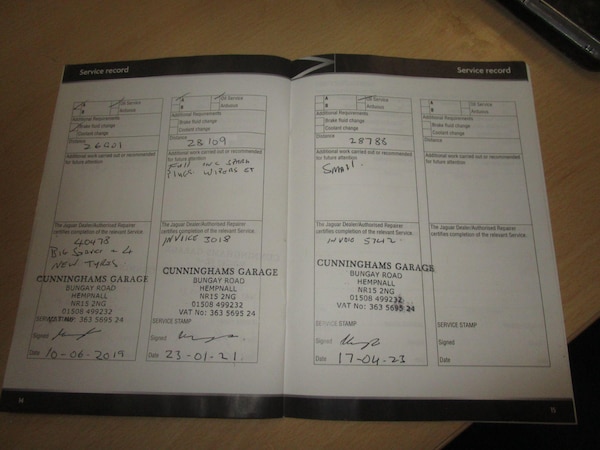 Service record
A
Oil Service
B
Antirust
Additional Requirements
Brake fluid change
Coolant change
Distance
26601
Additional work carried out or recommended
for future attention
The Jaguar Dealer/Authorised Repairer
certifies completion of the relevant Service.
40478
Big Service + 4
NEW TYRES.
CUNNINGHAMS GARAGE
BUNGAY ROAD
HEMPNALL
NR15 2NG
01508 499232
VAT No: 363 5695 24
SERVICE STAMP
Signed
Date 10-06-2019
A
Oil Service
B
Antirust
Additional Requirements
Brake fluid change
Coolant change
Distance
28109
Additional work carried out or recommended
for future attention
Full inc spark
Plugs wipers et
The Jaguar Dealer/Authorised Repairer
certifies completion of the relevant Service.
INVOICE 3018
CUNNINGHAMS GARAGE
BUNGAY ROAD
HEMPNALL
NR15 2NG
01508 499232
VAT No: 363 5695 24
SERVICE STAMP
Signed
Date 23-01-21.
14
Service record
A
Oil Service
B
Antirust
Additional Requirements
Brake fluid change
Coolant change
Distance
28786
Additional work carried out or recommended
for future attention
Small.
The Jaguar Dealer/Authorised Repairer
certifies completion of the relevant Service.
CUNNINGHAMS GARAGE
BUNGAY ROAD
HEMPNALL
NR15 2NG
01508 499232
VAT No: 363 5695 24
SERVICE STAMP
Signed
Date 17-04-23
A
Oil Service
B
Antirust
Additional Requirements
Brake fluid change
Coolant change
Distance
Additional work carried out or recommended
for future attention
The Jaguar Dealer/Authorised Repairer
certifies completion of the relevant Service.
SERVICE STAMP
Signed
Date
15